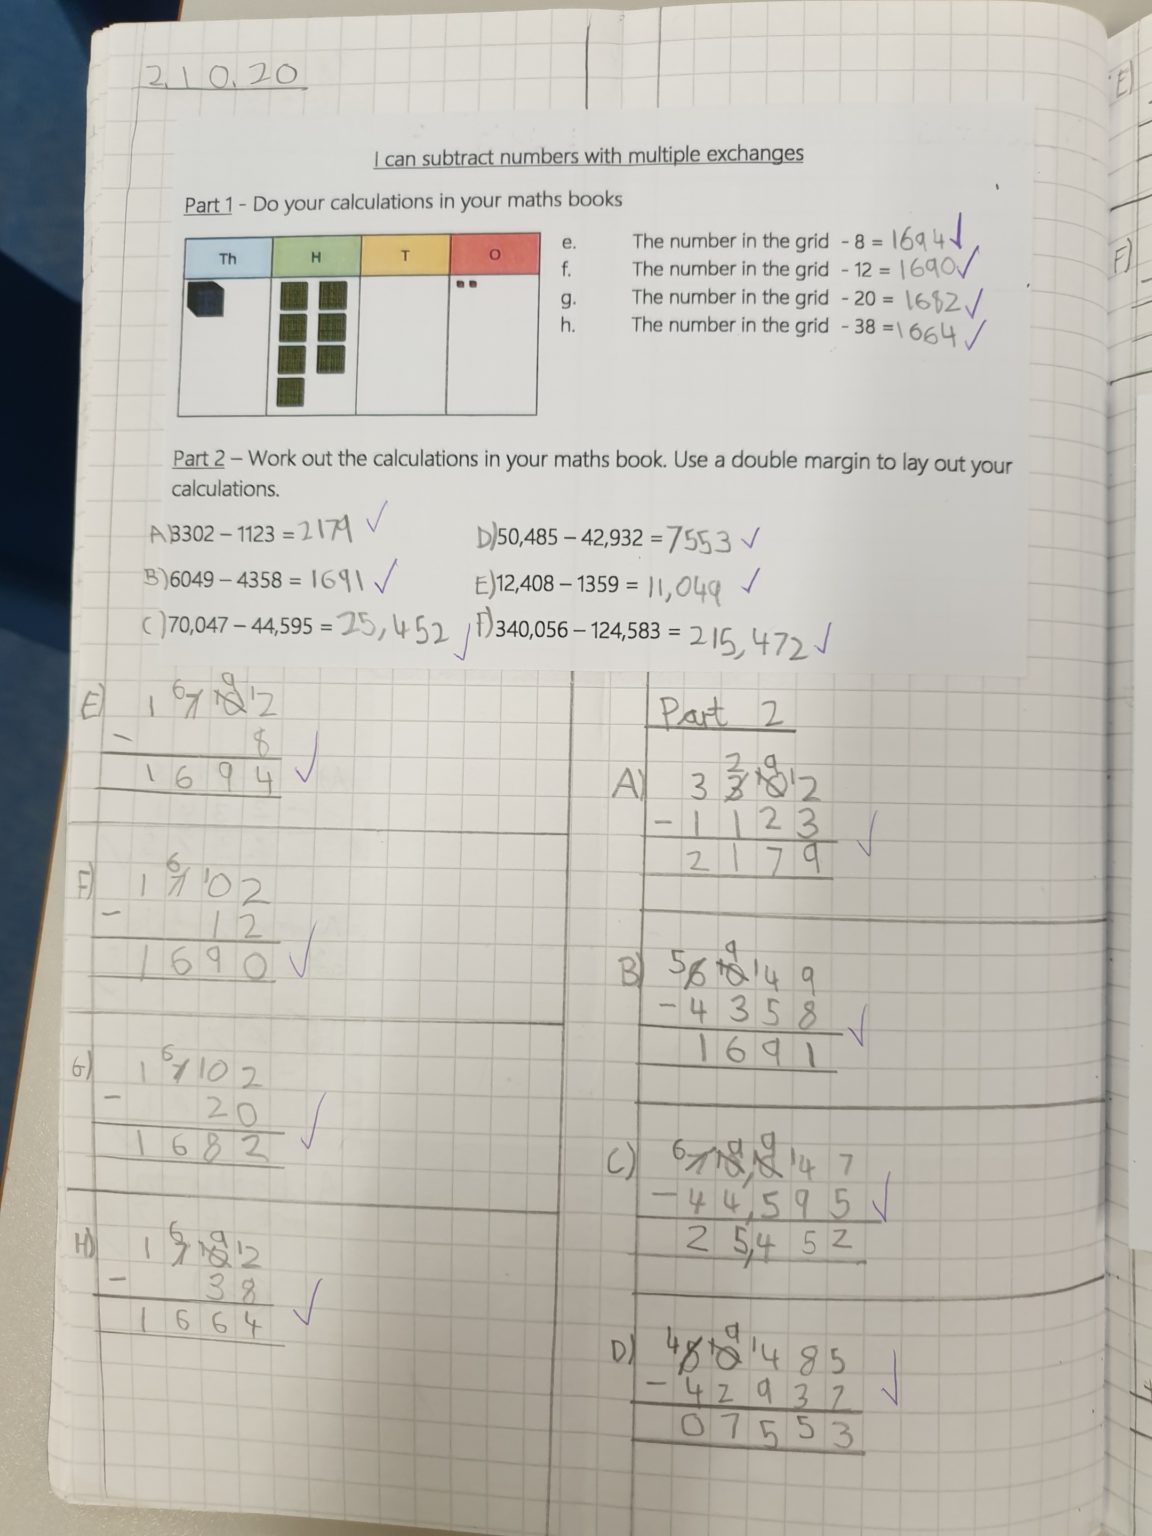 2.10.20
I can subtract numbers with multiple exchanges
Part 1 - Do your calculations in your maths books
Th H T O
e. The number in the grid - 8 = 1694
f. The number in the grid - 12 = 1690
g. The number in the grid - 20 = 1682
h. The number in the grid - 38 = 1664
Part 2 – Work out the calculations in your maths book. Use a double margin to lay out your
calculations.
A) 3302 – 1123 = 2179
D) 50,485 – 42,932 = 7553
B) 6049 – 4358 = 1691
E) 12,408 – 1359 = 11,049
C) 70,047 – 44,595 = 25,452
F) 340,056 – 124,583 = 215,472
E) 1 6 7 9 10 12
- 8
1 6 9 4
F) 1 6 7 10 2
- 1 2
1 6 9 0
G) 1 6 7 10 2
- 2 0
1 6 8 2
H) 1 6 7 9 10 12
- 3 8
1 6 6 4
Part 2
A) 3 2 3 9 10 12
- 1 1 2 3
2 1 7 9
B) 5 6 9 10 14 9
- 4 3 5 8
1 6 9 1
C) 6 7 9 10, 9 10 14 7
- 4 4, 5 9 5
2 5,4 5 2
D) 4 5 9 10 14 8 5
- 4 2 9 3 2
0 7 5 5 3
E)
F)